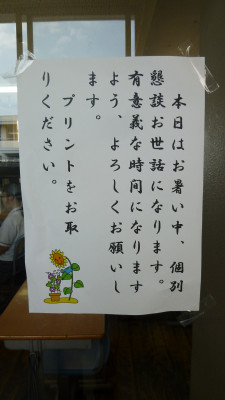 本日はお暑い中、個別
懇談お世話になります。
有意義な時間になります
よう、よろしくお願いし
ます。
プリントをお取
りください。